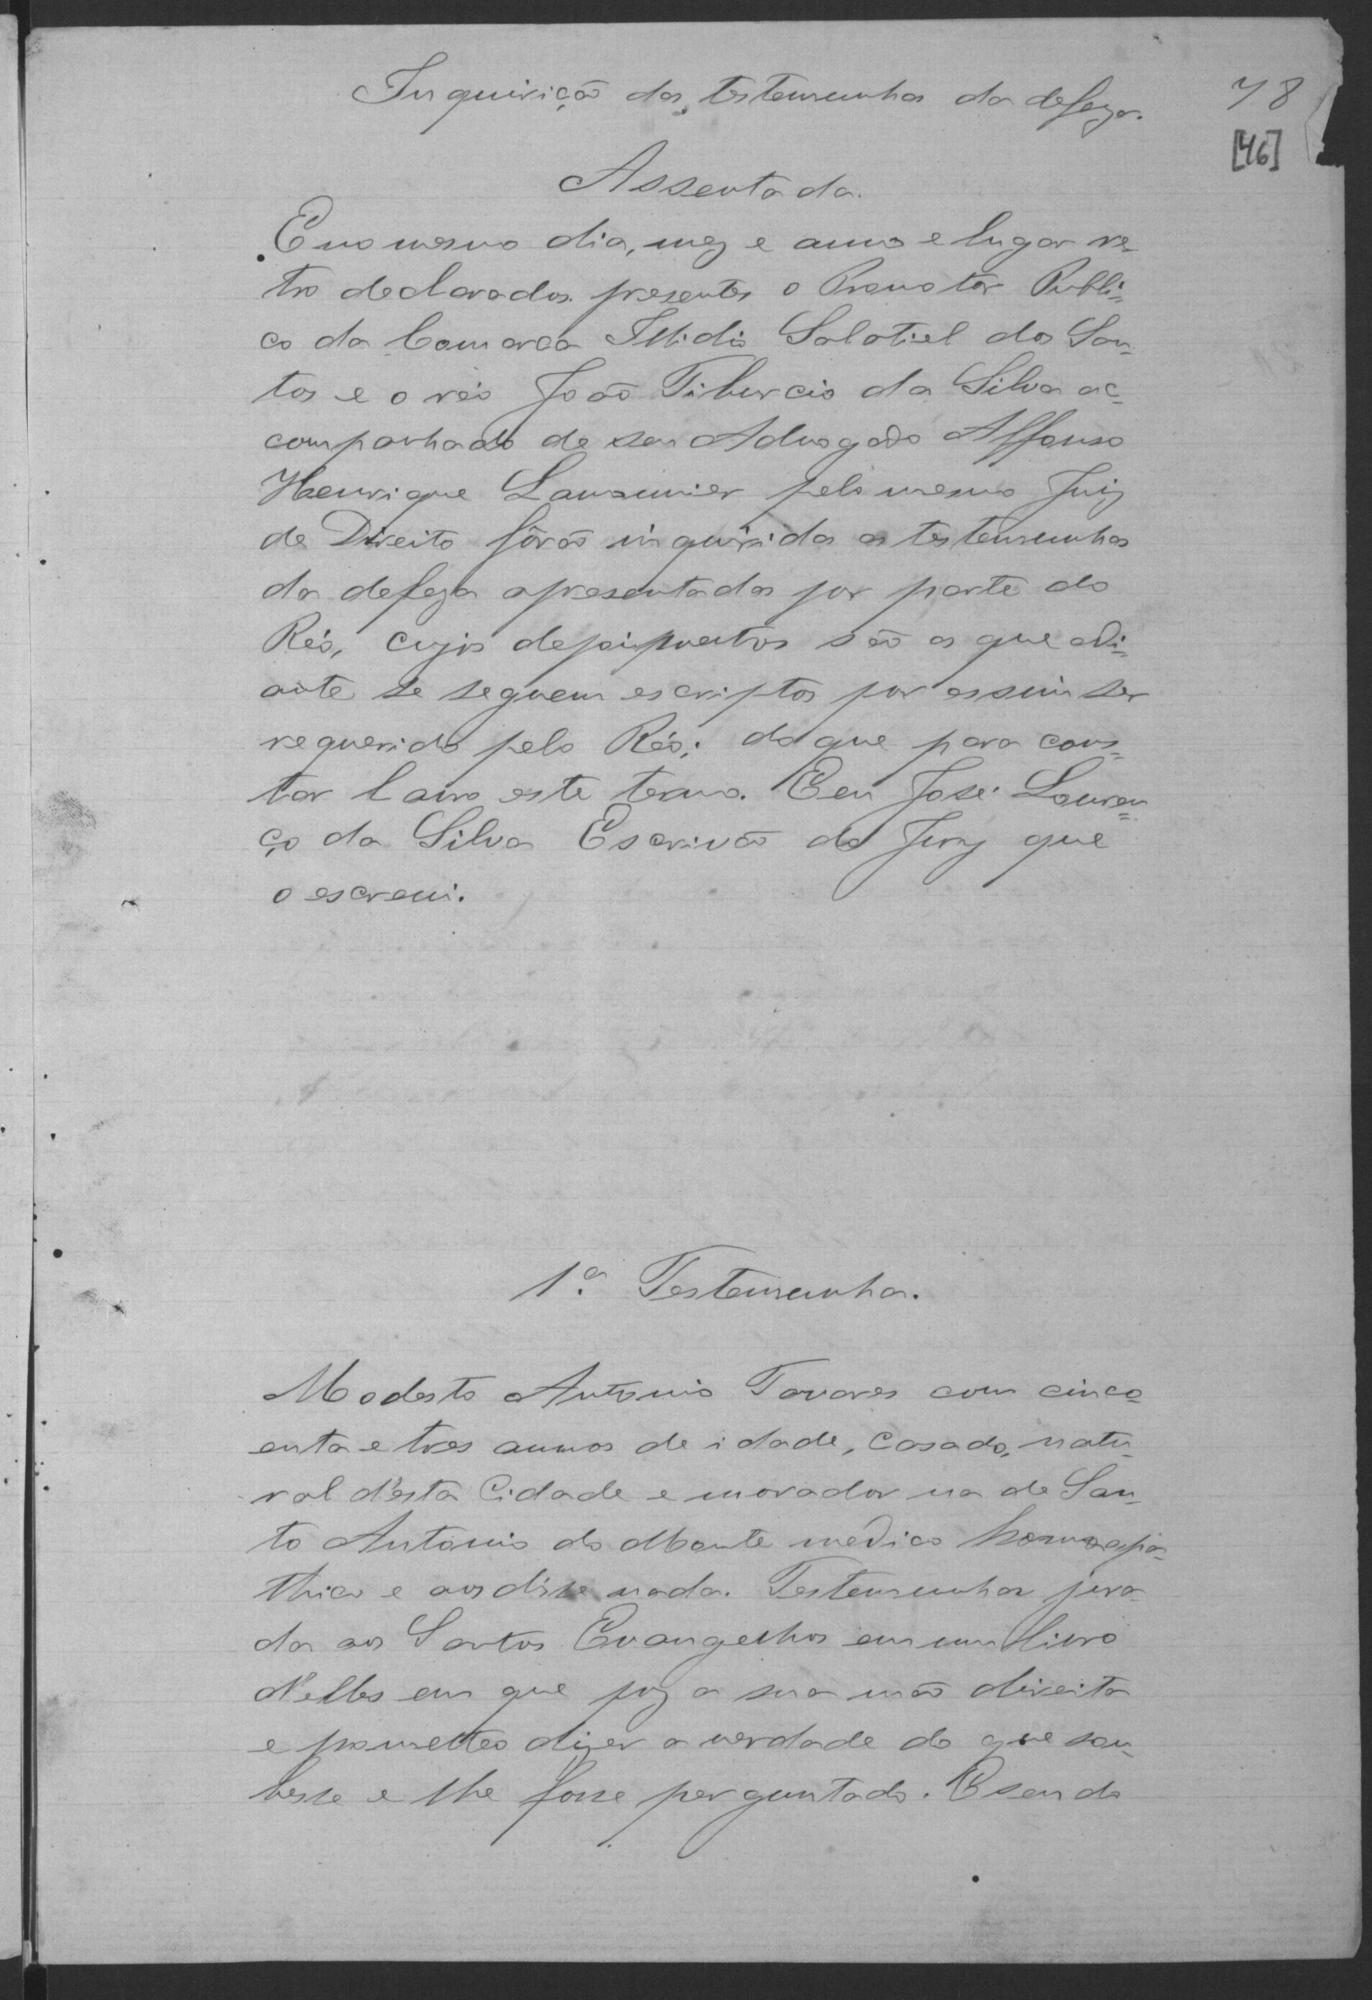 Inquirição das testemunhas da defeza.
78
[46]
Assentada.
E no mesmo dia, mez e anno e lugar re-
tro declarados presentes o Promotor Publi-
co da Comarca Illidio Salatiel dos San-
tos e o réo João Tiburcio da Silva ac-
companhado de seu Advogado Affonso
Henrique Launier pelo mesmo Juiz
de Direito fôrão inquiridas as testemunhas
da defeza apresentadas por parte do
Réo, cujos depoipuentos são os que adi-
ante se seguem escriptos por assim ser
requerido pelo Réo; do que para cons-
tar lavro este termo. Eeu José Louren-
ço da Silva Escrivão do Jury que
o escrevi.
1ª. Testemunha.
Modesto Antonio Tavares com cinco-
enta e tres annos de idade, casado, natu-
ral d'esta Cidade e morador na de San-
to Antonio do Monte medico homeopa-
thico e aos disse nada. Testemunha jura-
da aos Santos Evangelhos em um livro
d'elles em que poz a sua mão direita
e prometteo dizer a verdade do que sou-
besse e lhe fosse perguntado. E sendo